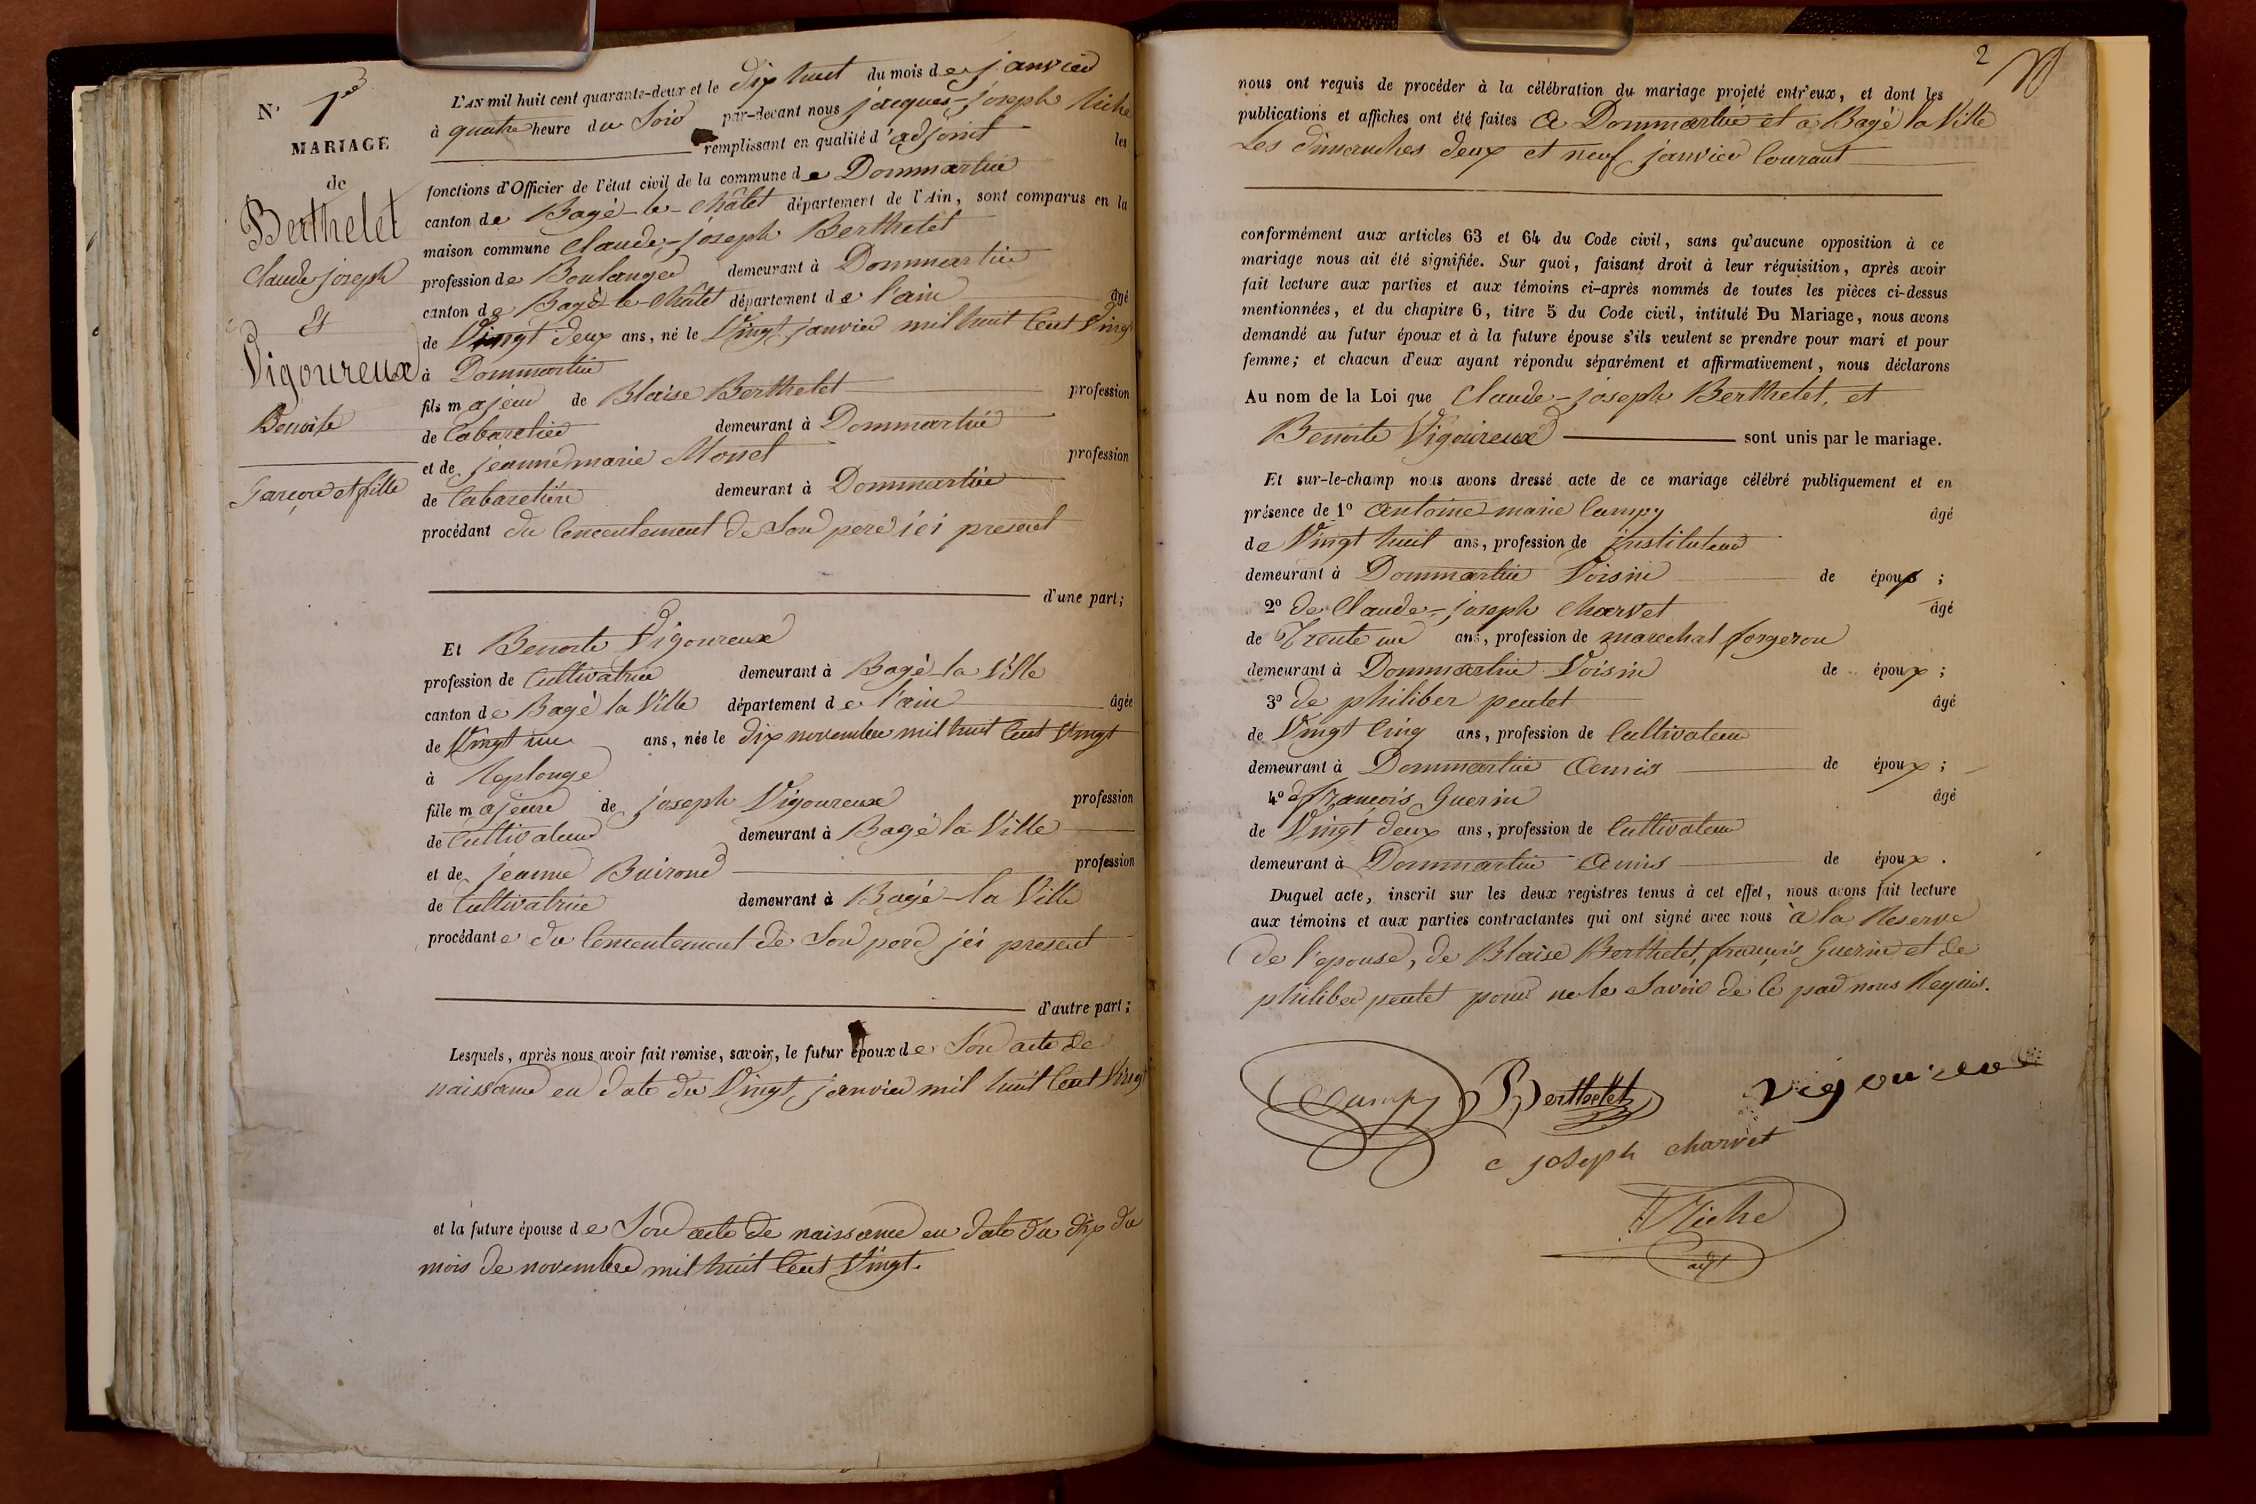 N° 1er
MARIAGE
de
Berthelet
Claude joseph
Et
Vigoureux
Benoite
Garçon et fille
L'AN mil huit cent quarante-deux et le dix huit du mois de janvier
à quatre heure du Soir par-devant nous jacques-joseph Niche
remplissant en qualité d'adjoint les
fonctions d'Officier de l'état civil de la commune de Dommartin
canton de Bagé-le-châtel département de l'Ain, sont comparus en la
maison commune Claude-joseph Berthelet
profession de Boulanger demeurant à Dommartin
canton de Bagé-le-châtel département de l'ain âgé
de Vingt deux ans, né le Vingt janvier mil huit Cent Vingt
à Dommartin
fils majeur de Blaise Berthelet profession
de Cabaretier demeurant à Dommartin
et de jeanne marie Monet profession
de Cabaretière demeurant à Dommartin
procédant du Concentement de Son pere ici present
d'une part;
Et Benoite Vigoureux
profession de Cultivatrice demeurant à Bagé-la Ville
canton de Bagé la Ville département de l'ain âgée
de Vingt un ans, née le dix novembre mil huit Cent Vingt
à Replonge
fille majeure de joseph Vigoureux profession
de Cultivateur demeurant à Bagé la Ville
et de jeanne Buirond profession
de Cultivatrice demeurant à Bagé-la Ville
procédante du Concentement de Son pere jci present
d'autre part;
Lesquels, après nous avoir fait remise, savoir, le futur époux de Son acte de
naissance en date du Vingt janvier mil huit Cent Vingt
et la future épouse de Son acte de naissance en date du dix du
mois de novembre mil huit Cent Vingt.
2
nous ont requis de procéder à la célébration du mariage projeté entr'eux, et dont les
publications et affiches ont été faites a Dommartin et a Bagé la Ville
Les dimanches deux et neuf janvier Courant
conformément aux articles 63 et 64 du Code civil, sans qu'aucune opposition à ce
mariage nous ait été signifiée. Sur quoi, faisant droit à leur réquisition, après avoir
fait lecture aux parties et aux témoins ci-après nommés de toutes les pièces ci-dessus
mentionnées, et du chapitre 6, titre 5 du Code civil, intitulé Du Mariage, nous avons
demandé au futur époux et à la future épouse s'ils veulent se prendre pour mari et pour
femme; et chacun d'eux ayant répondu séparément et affirmativement, nous déclarons
Au nom de la Loi que Claude-joseph Berthelet, et
Benoite Vigoureux sont unis par le mariage.
Et sur-le-champ nous avons dressé acte de ce mariage célébré publiquement et en
présence de 1° antoine marie Campy âgé
de Vingt huit ans, profession de jnstituteur
demeurant à Dommartin Voisin de époux ;
2° de Claude-joseph Charvet âgé
de Trente un ans, profession de marechal forgeron
demeurant à Dommartin Voisin de époux ;
3° de philiber peutet âgé
de Vingt Cinq ans, profession de Cultivateur
demeurant à Dommartin amis de époux ;
4° de françois Guerin âgé
de Vingt deux ans, profession de Cultivateur
demeurant à Dommartin amis de époux .
Duquel acte, inscrit sur les deux registres tenus à cet effet, nous avons fait lecture
aux témoins et aux parties contractantes qui ont signé avec nous à la Reserve
de l'epouse, de Blaise Berthelet, françois Guerin et de
philiber peutet pour ne le Savoir de Ce par nous Requis.
Campy Berthelet vigoureux
c joseph charvet
Niche
adjt